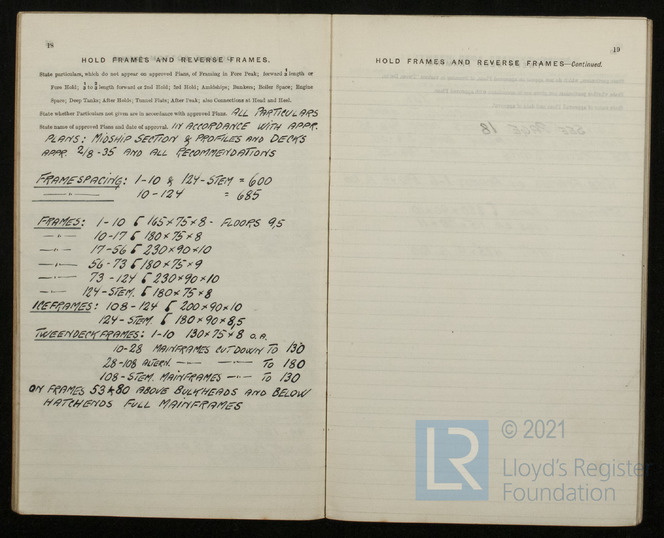 18
HOLD FRAMES AND REVERSE FRAMES.
State particulars, which do not appear on approved Plans, of Framing in Fore Peak; forward 1/4 length or
Fore Hold; 1/4 to 2/5 length forward or 2nd Hold; 3rd Hold; Amidships; Bunkers; Boiler Space; Engine
Space; Deep Tanks; After Holds; Tunnel Flats; After Peak; also Connections at Head and Heel.
State whether Particulars not given are in accordance with approved Plans. ALL PARTICULARS
State name of approved Plans and date of approval. IN ACCORDANCE WITH APPR.
PLANS: MIDSHIP SECTION & PROFILES AND DECKS
APPR. 2/8-35 AND ALL RECOMMENDATIONS
FRAMESPACING: 1-10 & 124-STEM = 600
—"— 10-124 = 685
FRAMES: 1-10 [ 165×75×8 - FLOORS 9,5
—"— 10-17 [ 180×75×8
—"— 17-56 [ 230×90×10
—"— 56-73 [ 180×75×9
—"— 73-124 [ 230×90×10
—"— 124-STEM. [ 180×75×8
ICEFRAMES: 108-124 [ 200×90×10
124-STEM. [ 180×90×8,5
TWEENDECKFRAMES: 1-10 130×75×8 O.A.
10-28 MAINFRAMES CUT DOWN TO 130
28-108 ALTERN. —"— —"— TO 180
108-STEM. MAINFRAMES —"— TO 130
ON FRAMES 53 & 80 ABOVE BULKHEADS AND BELOW
HATCHENDS FULL MAINFRAMES
19
HOLD FRAMES AND REVERSE FRAMES—Continued.
SEE PAGE 18
LR
© 2021
Lloyd's Register
Foundation